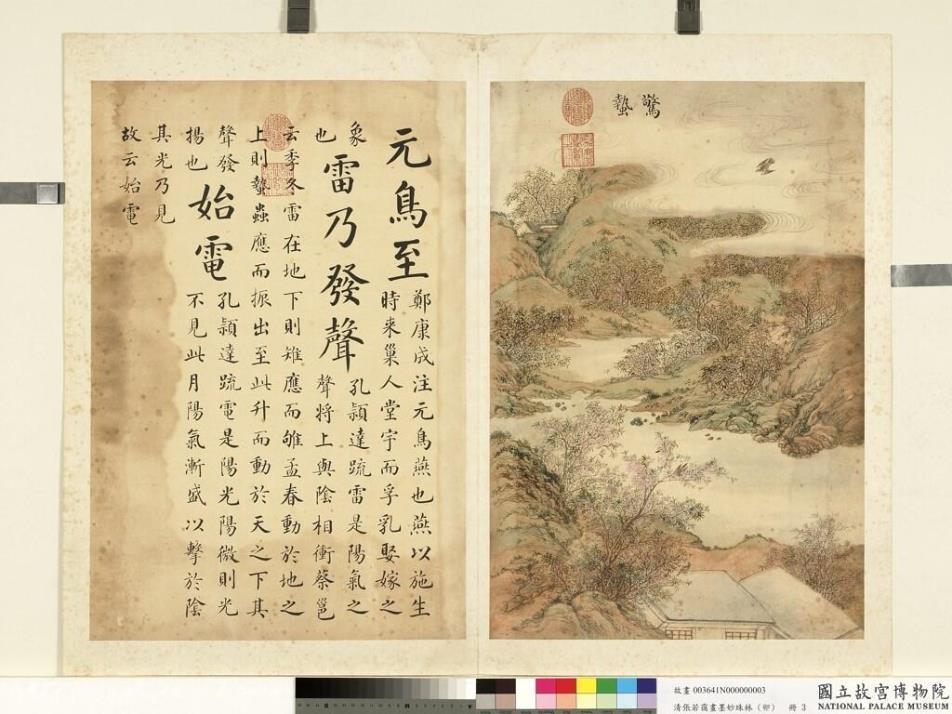 驚蟄
元鳥至
鄭康成注元鳥燕也燕以施生
時來巢人堂宇而孚乳娶嫁之
象
也
雷乃發聲
孔頴達䟽雷是陽氣之
聲將上與陰相衝蔡邕
云季冬雷在地下則雉應而雊孟春動於地之
上則蟄蟲應而振出至此升而動於天之下其
聲發
揚也
始電
孔頴達䟽電是陽光陽微則光
不見此月陽氣漸盛以擊於陰
其光乃見
故云始電
故畫 003641N000000003
清張若靄畫墨妙珠林（卯） 冊 3
國立故宮博物院
NATIONAL PALACE MUSEUM